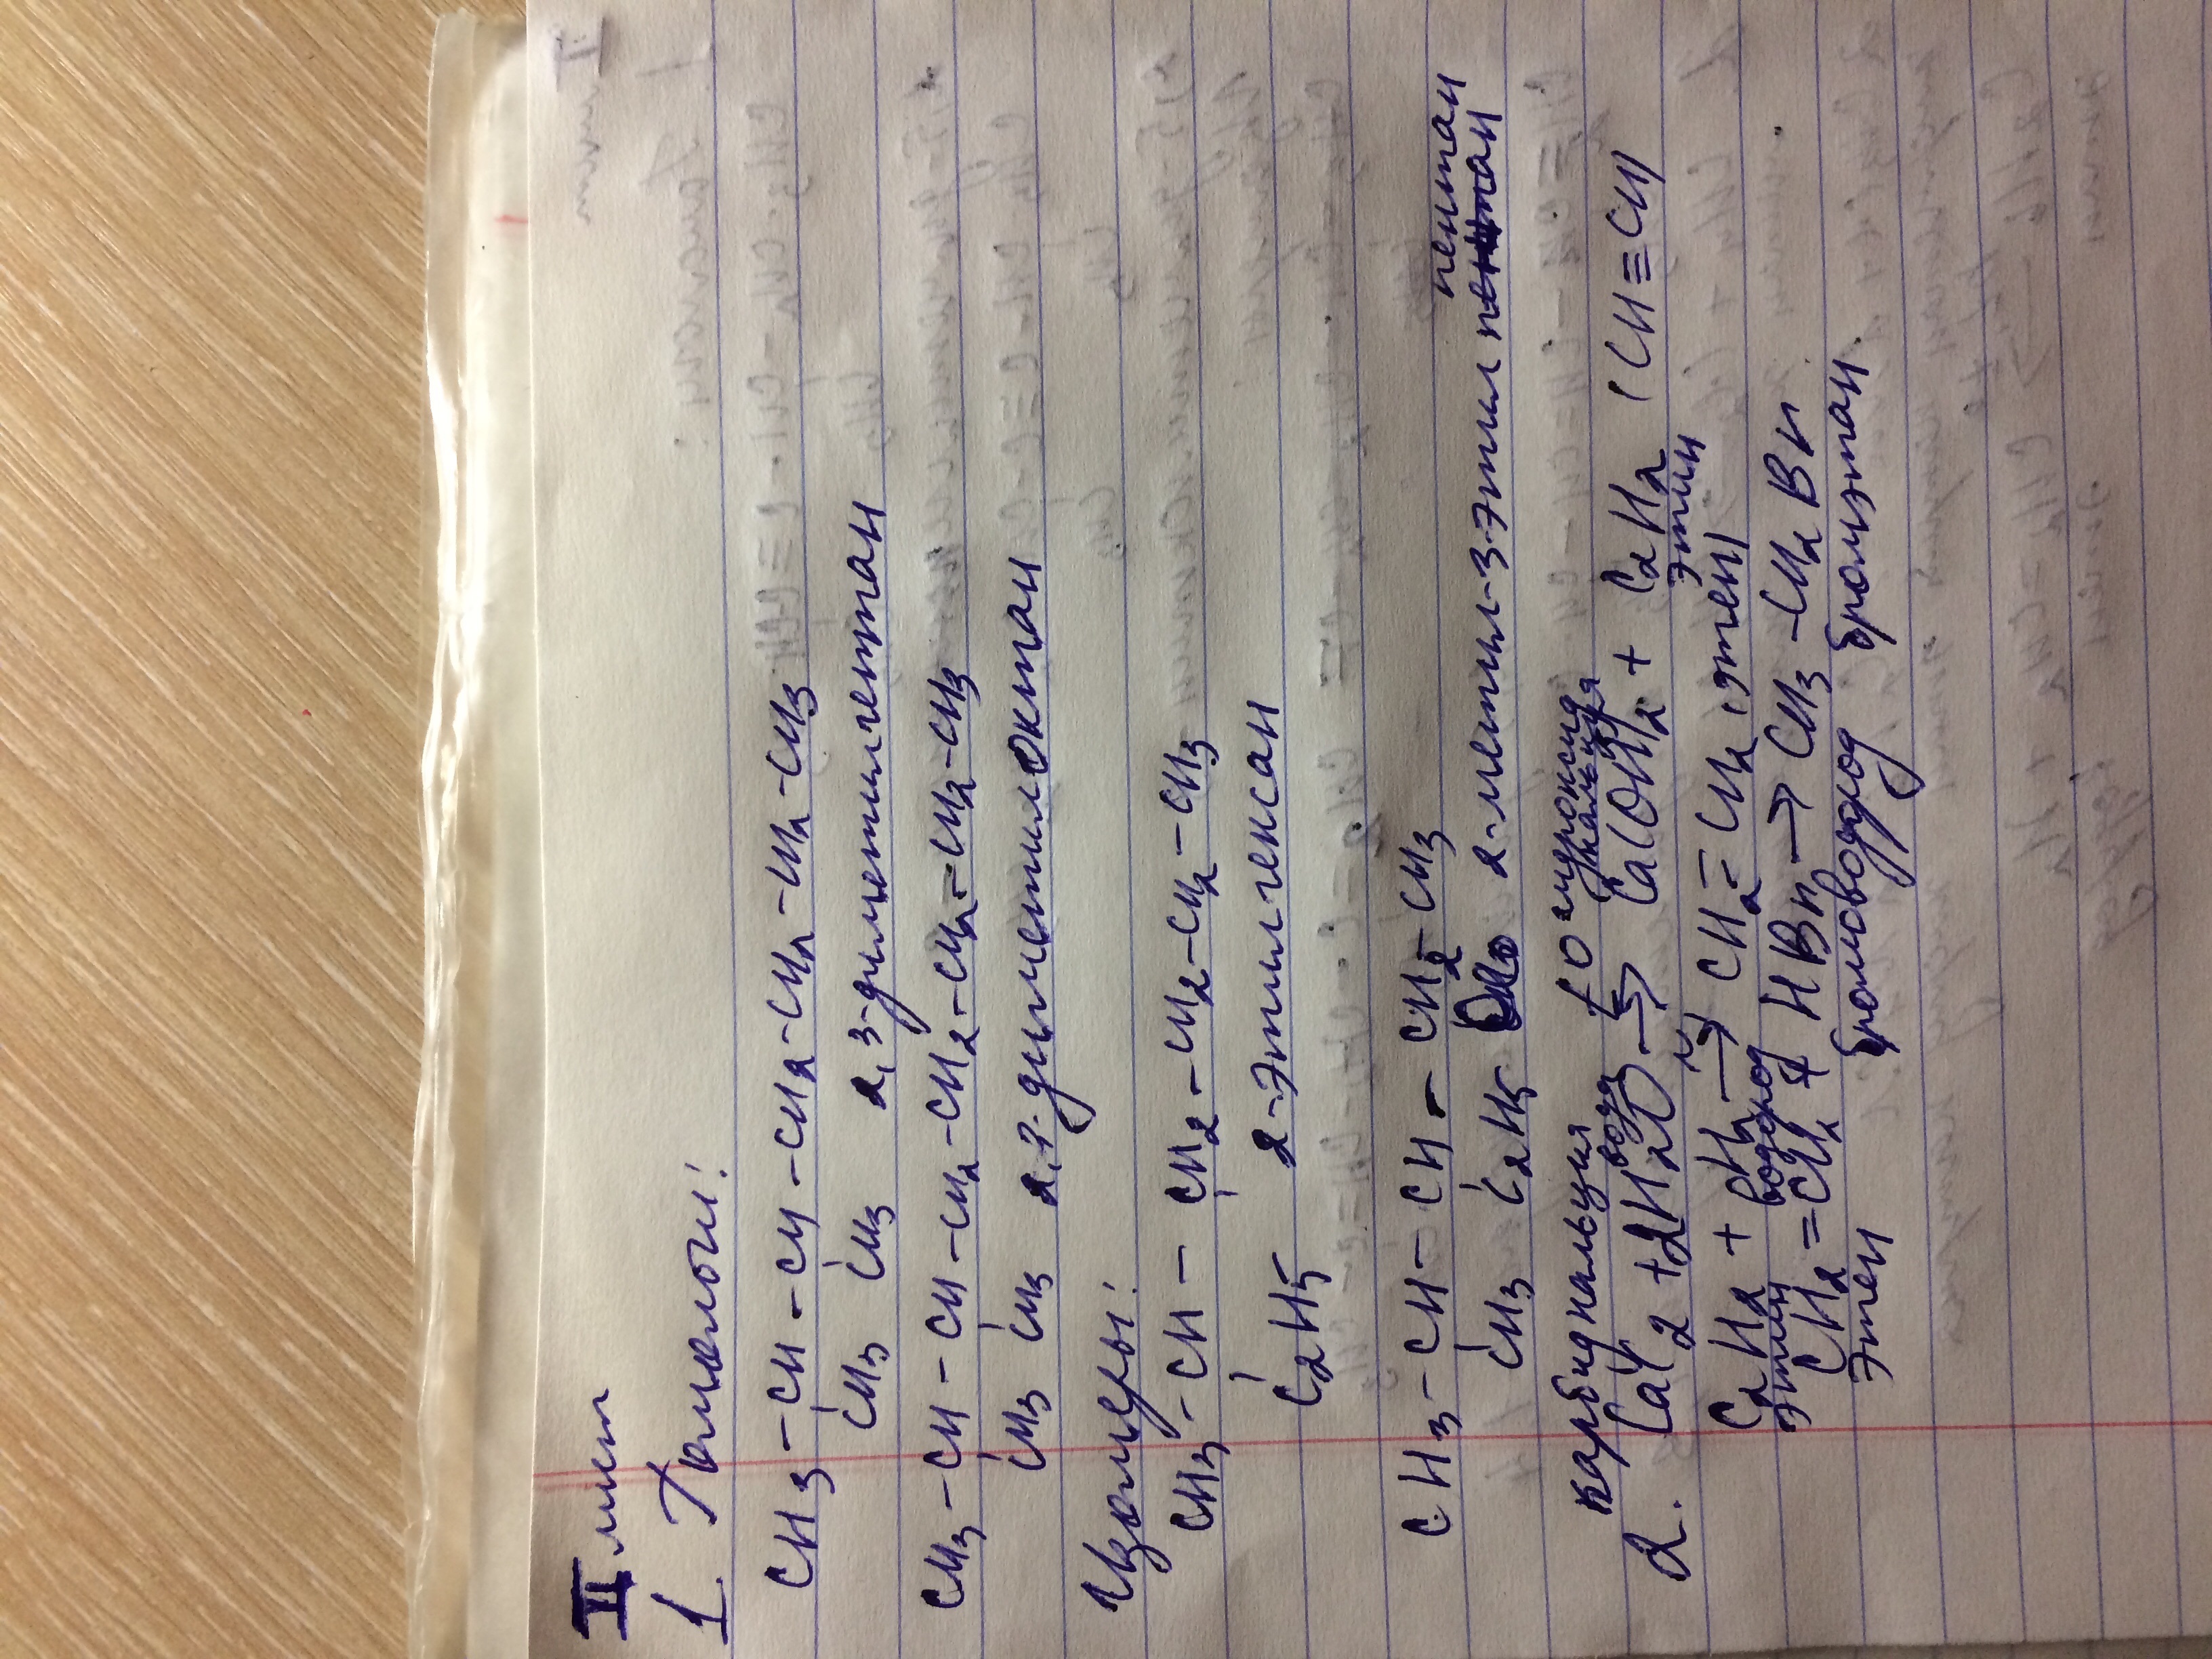 II лист
1. Гомологи:
CH3-CH-CH-CH2-CH2-CH2-CH3
CH3 CH3 2,3-диметилгептан
CH3-CH-CH-CH2-CH2-CH2-CH2-CH3
CH3 CH3 2,3-диметилоктан
Изомеры:
CH3-CH-CH2-CH2-CH2-CH3
C2H5 2-этилгексан
CH3-CH-CH-CH2-CH3 пентан
CH3 C2H5 2-метил-3-этил
карбид кальция вода гидроксид кальция
2. CaC2+2H2O → Ca(OH)2 + C2H2 (CH≡CH)
этин
C2H2 + H2 → CH2=CH2 (этен)
этин водород
CH2=CH2 + HBr → CH3-CH2Br
этен бромоводород бромэтан